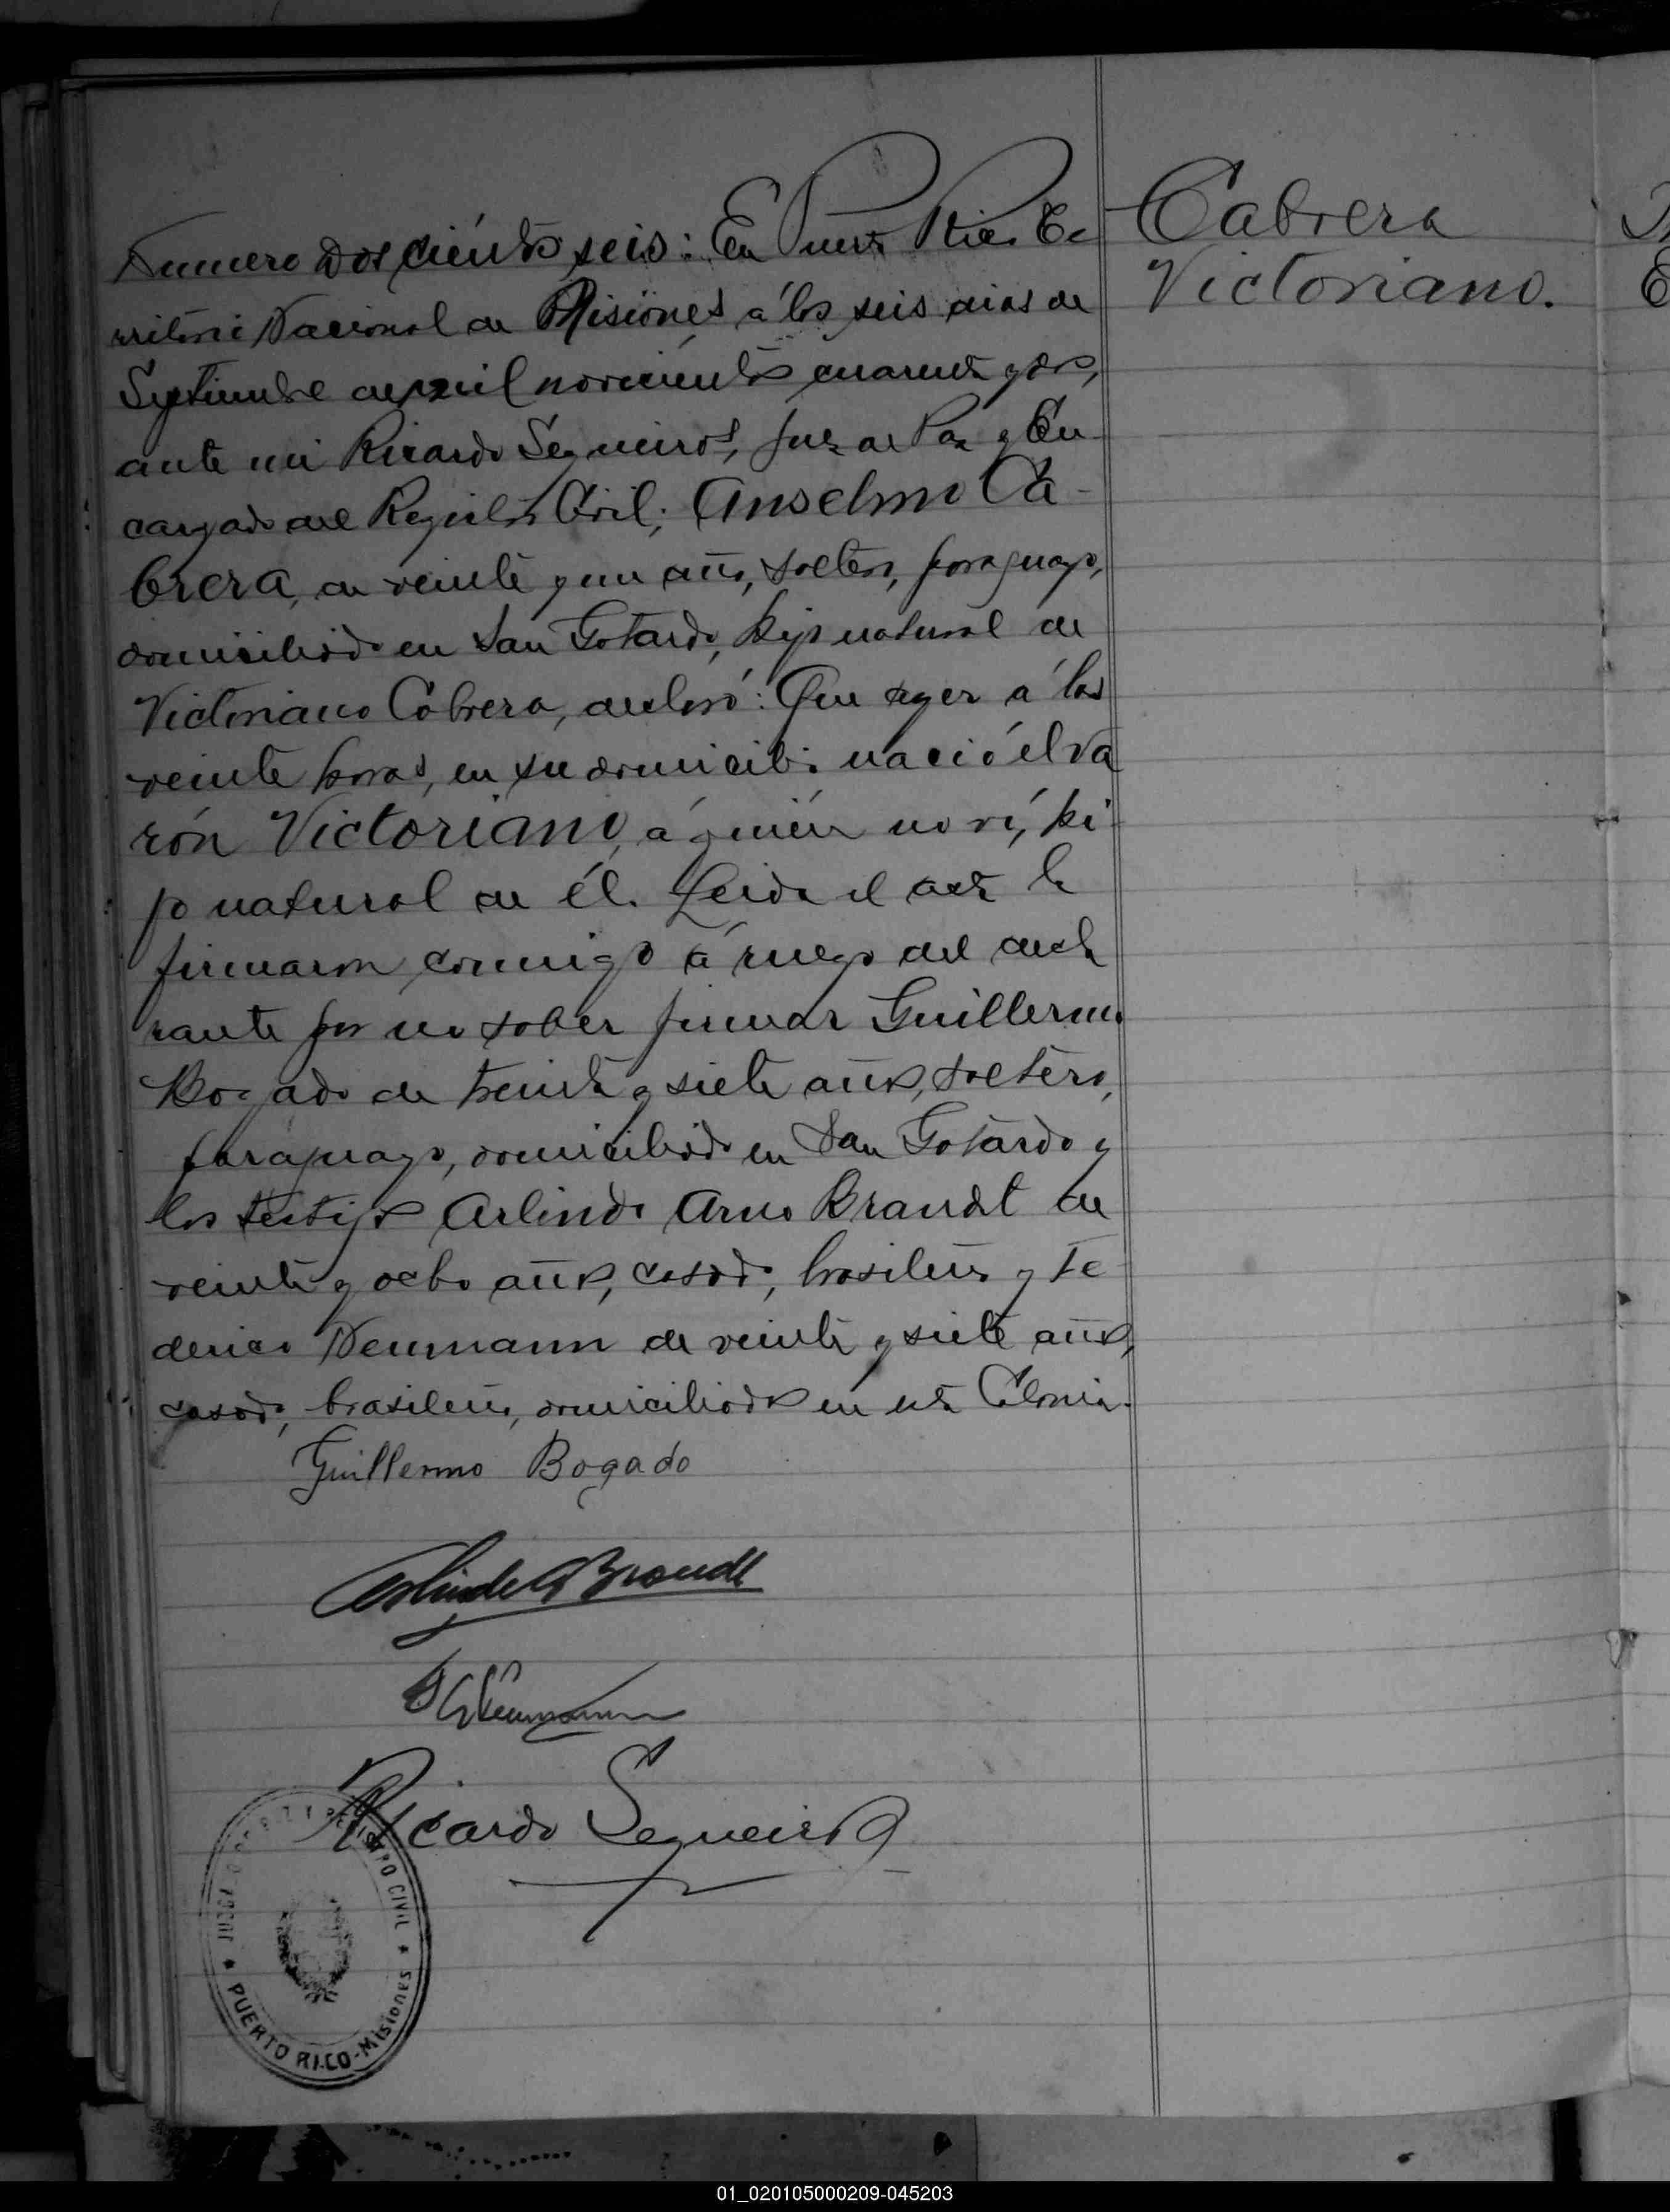 Numero Doscientos seis: En Puerto Rico Te
rritorio Nacional de Misiones á los seis dias de
Septiembre de mil novecientos cuarenta y dos,
ante mi Ricardo Sequeiros, Juez de Paz y En-
cargado del Registro Civil; Anselmo Ca-
brera, de veinte y un años, soltero, paraguayo,
domiciliado en San Gotardo, hijo natural de
Victoriano Cabrera, declaró: Que ayer á las
veinte horas, en su domicilio nació el va
rón Victoriano, á quién no ví, hi
jo natural de él. Leida el acta la
firmaron conmigo á ruego del decla
rante por no saber firmar Guillermo
Bogado de treinta y siete años, soltero,
paraguayo, domiciliado en San Gotardo y
los testigos Arlindo Arno Brandt de
veinte y ocho años, casado, brasileño y Fe
derico Neumann de veinte y siete años,
casado, brasileño, domiciliados en esta Colonia.
Guillermo Bogado
Arlindo A Brandt
Neumann
Ricardo Sequeiros
REGISTRO CIVIL ★ PUERTO RICO-Misiones ★
Cabrera
Victoriano.
01_020105000209-045203